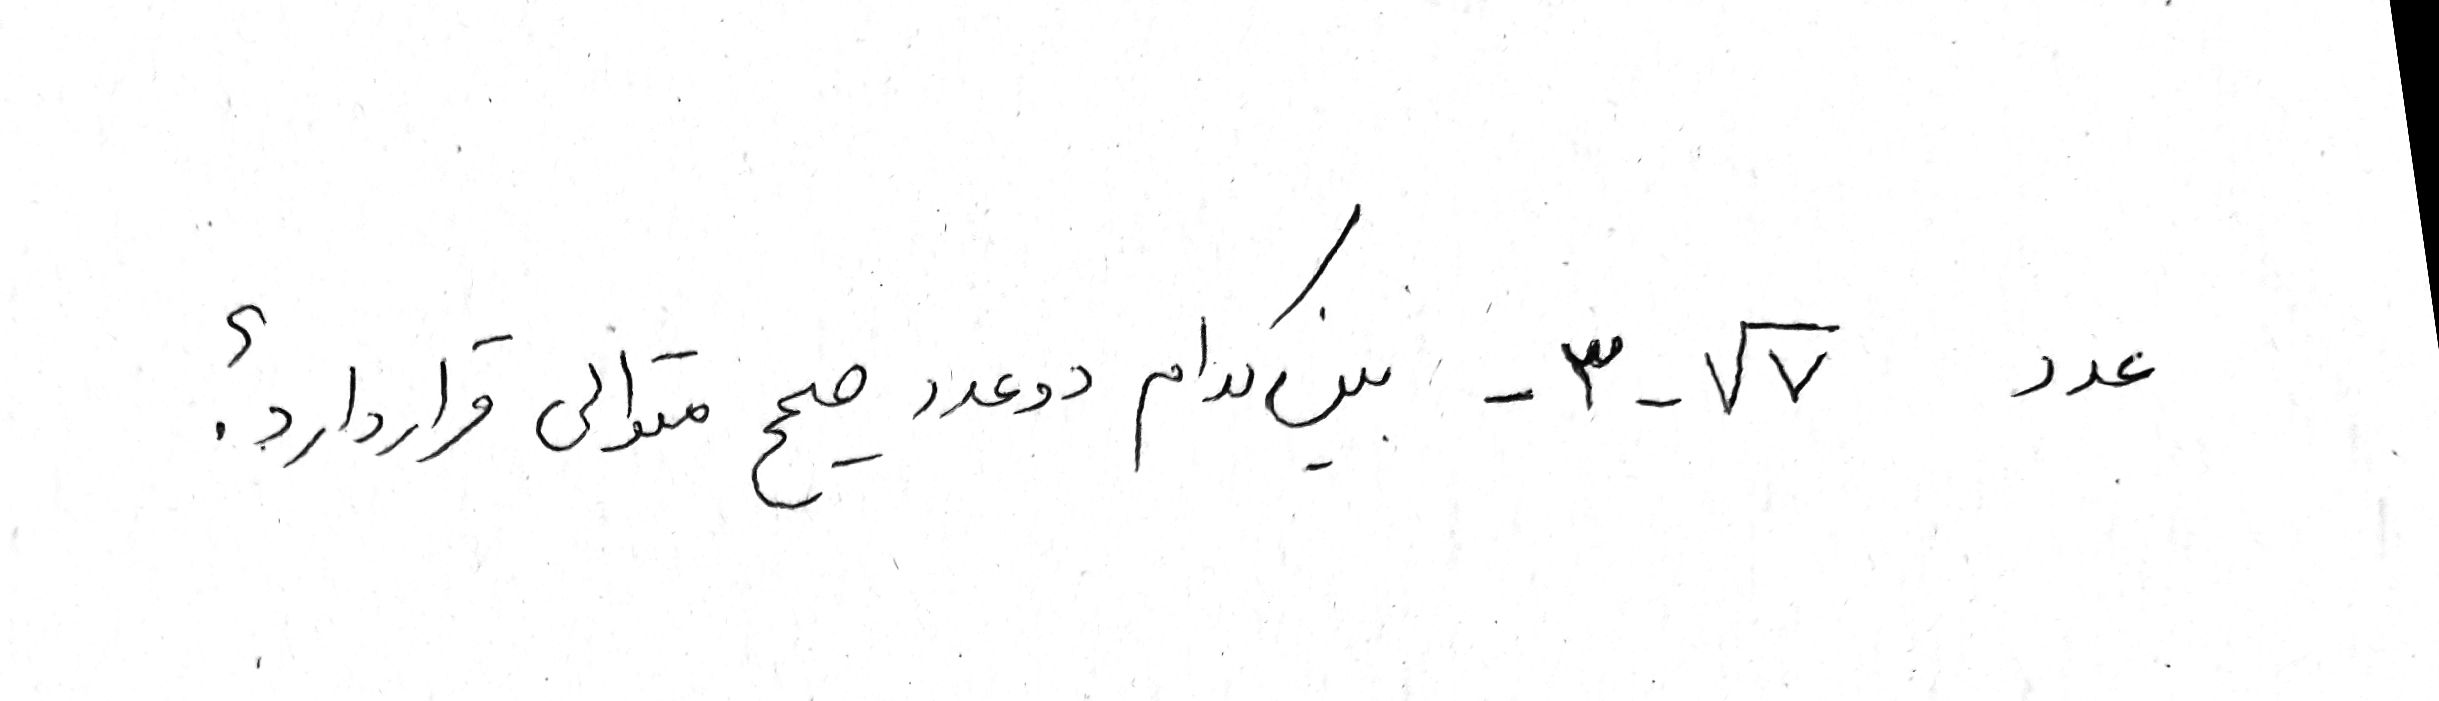 عدد -۳-√۷ بین کدام دو عدد صحیح متوالی قرار دارد؟